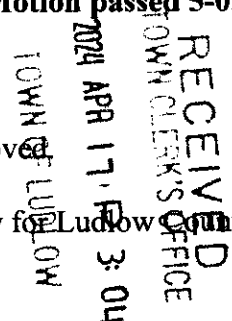 Motion passed 5-0
oved.
y for Ludlow Coun
RECEIVED
TOWN CLERK'S OFFICE
2024 APR 17 P 3:04
TOWN OF LUDLOW